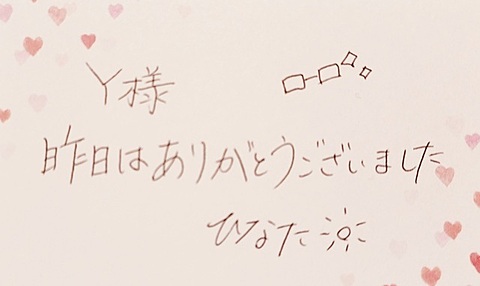 Y様
昨日はありがとうございました
ひなた